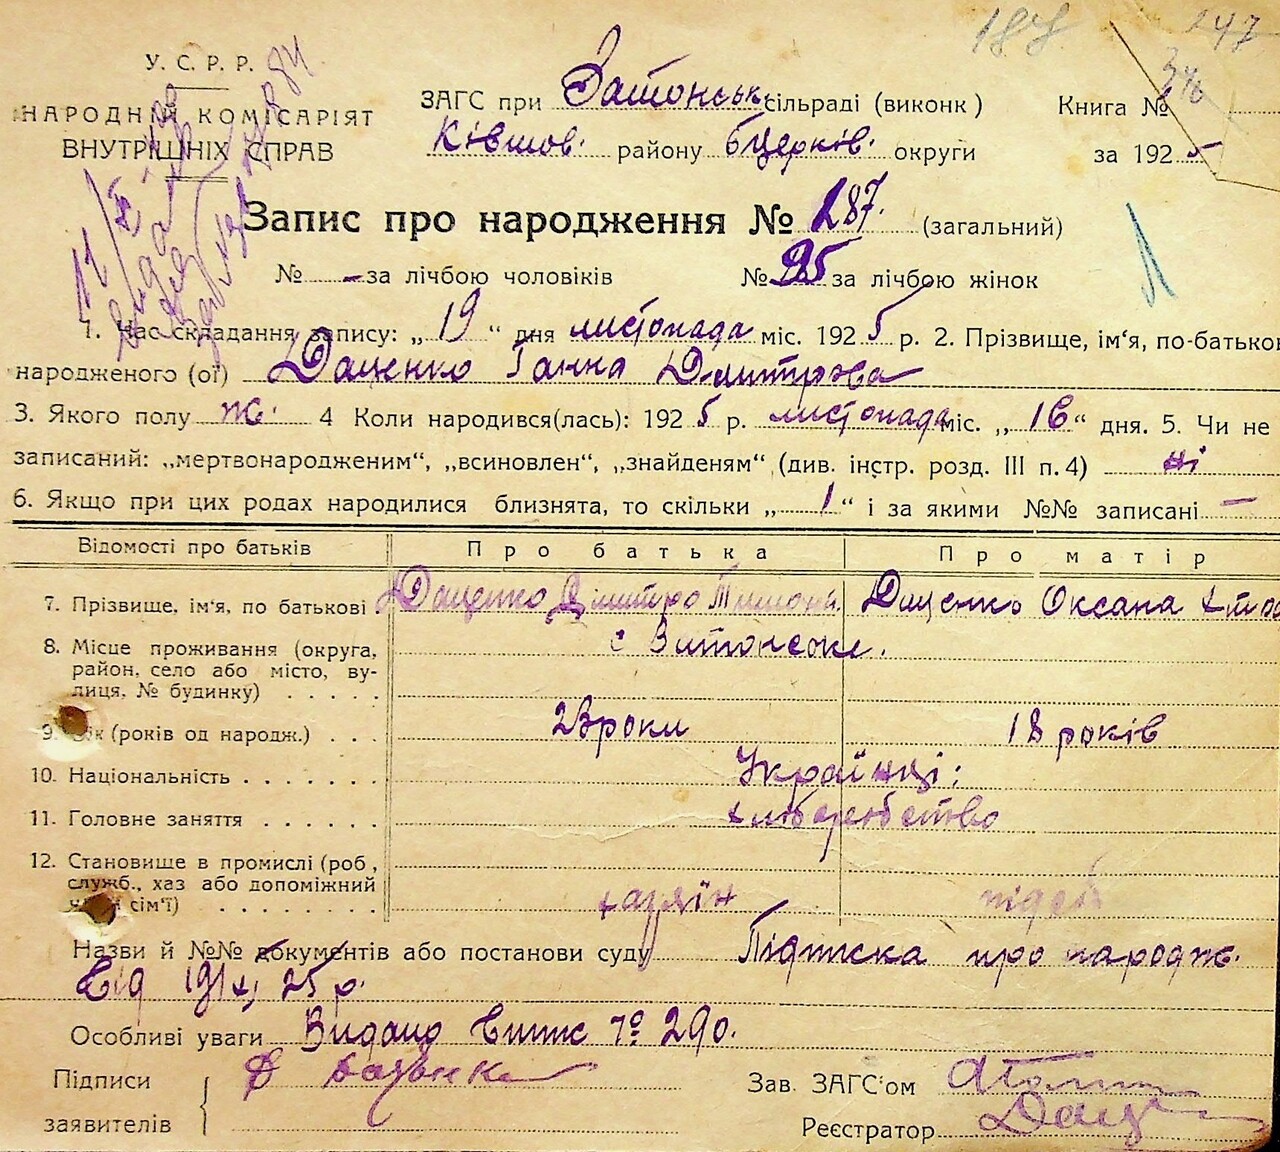 187 247
346
У. С. Р. Р.
НАРОДНІЙ КОМІСАРІЯТ
ВНУТРІШНІХ СПРАВ
ЗАГС при Затонськ. сільраді (виконк )
Ківшов. району Бцерків. округи
Книга №
за 1925
Запис про народження № 287. (загальний)
№ - за лічбою чоловіків № 95 за лічбою жінок
1. Час складання запису: „ 19 “ дня листопада міс. 1925 р. 2. Прізвище, ім‘я, по-батькові
народженого (ої) Даценко Ганна Дмитрова
3. Якого полу ж. 4 Коли народився(лась): 1925 р. листопада міс. „ 16 “ дня. 5. Чи не
записаний: „мертвонародженим“, „всиновлен“, „знайденям“ (див. інстр. розд. III п. 4) ні
6. Якщо при цих родах народилися близнята, то скільки „ 1 “ і за якими №№ записані —
Відомості про батьків Про батька Про матір
7. Прізвище, ім‘я, по батькові Даценко Дмитро Тимон. Даценко Оксана
8. Місце проживання (округа,
район, село або місто, ву-
лиця, № будинку) . . . . .
с Затонське.
9. Вік (років од народж.) . . . 23 роки 18 років
10. Національність . . . . . . . Українці:
11. Головне заняття . . . . . . хліборобство
12. Становище в промислі (роб ,
служб., хаз або допоміжний
член сім‘ї) . . . . . . . .
хазяїн
Назви й №№ документів або постанови суду Підписка про народж.
від 19/XI, 25 р.
Особливі уваги Видано витяг № 290.
Підписи
заявителів
Зав. ЗАГС‘ом
Реєстратор